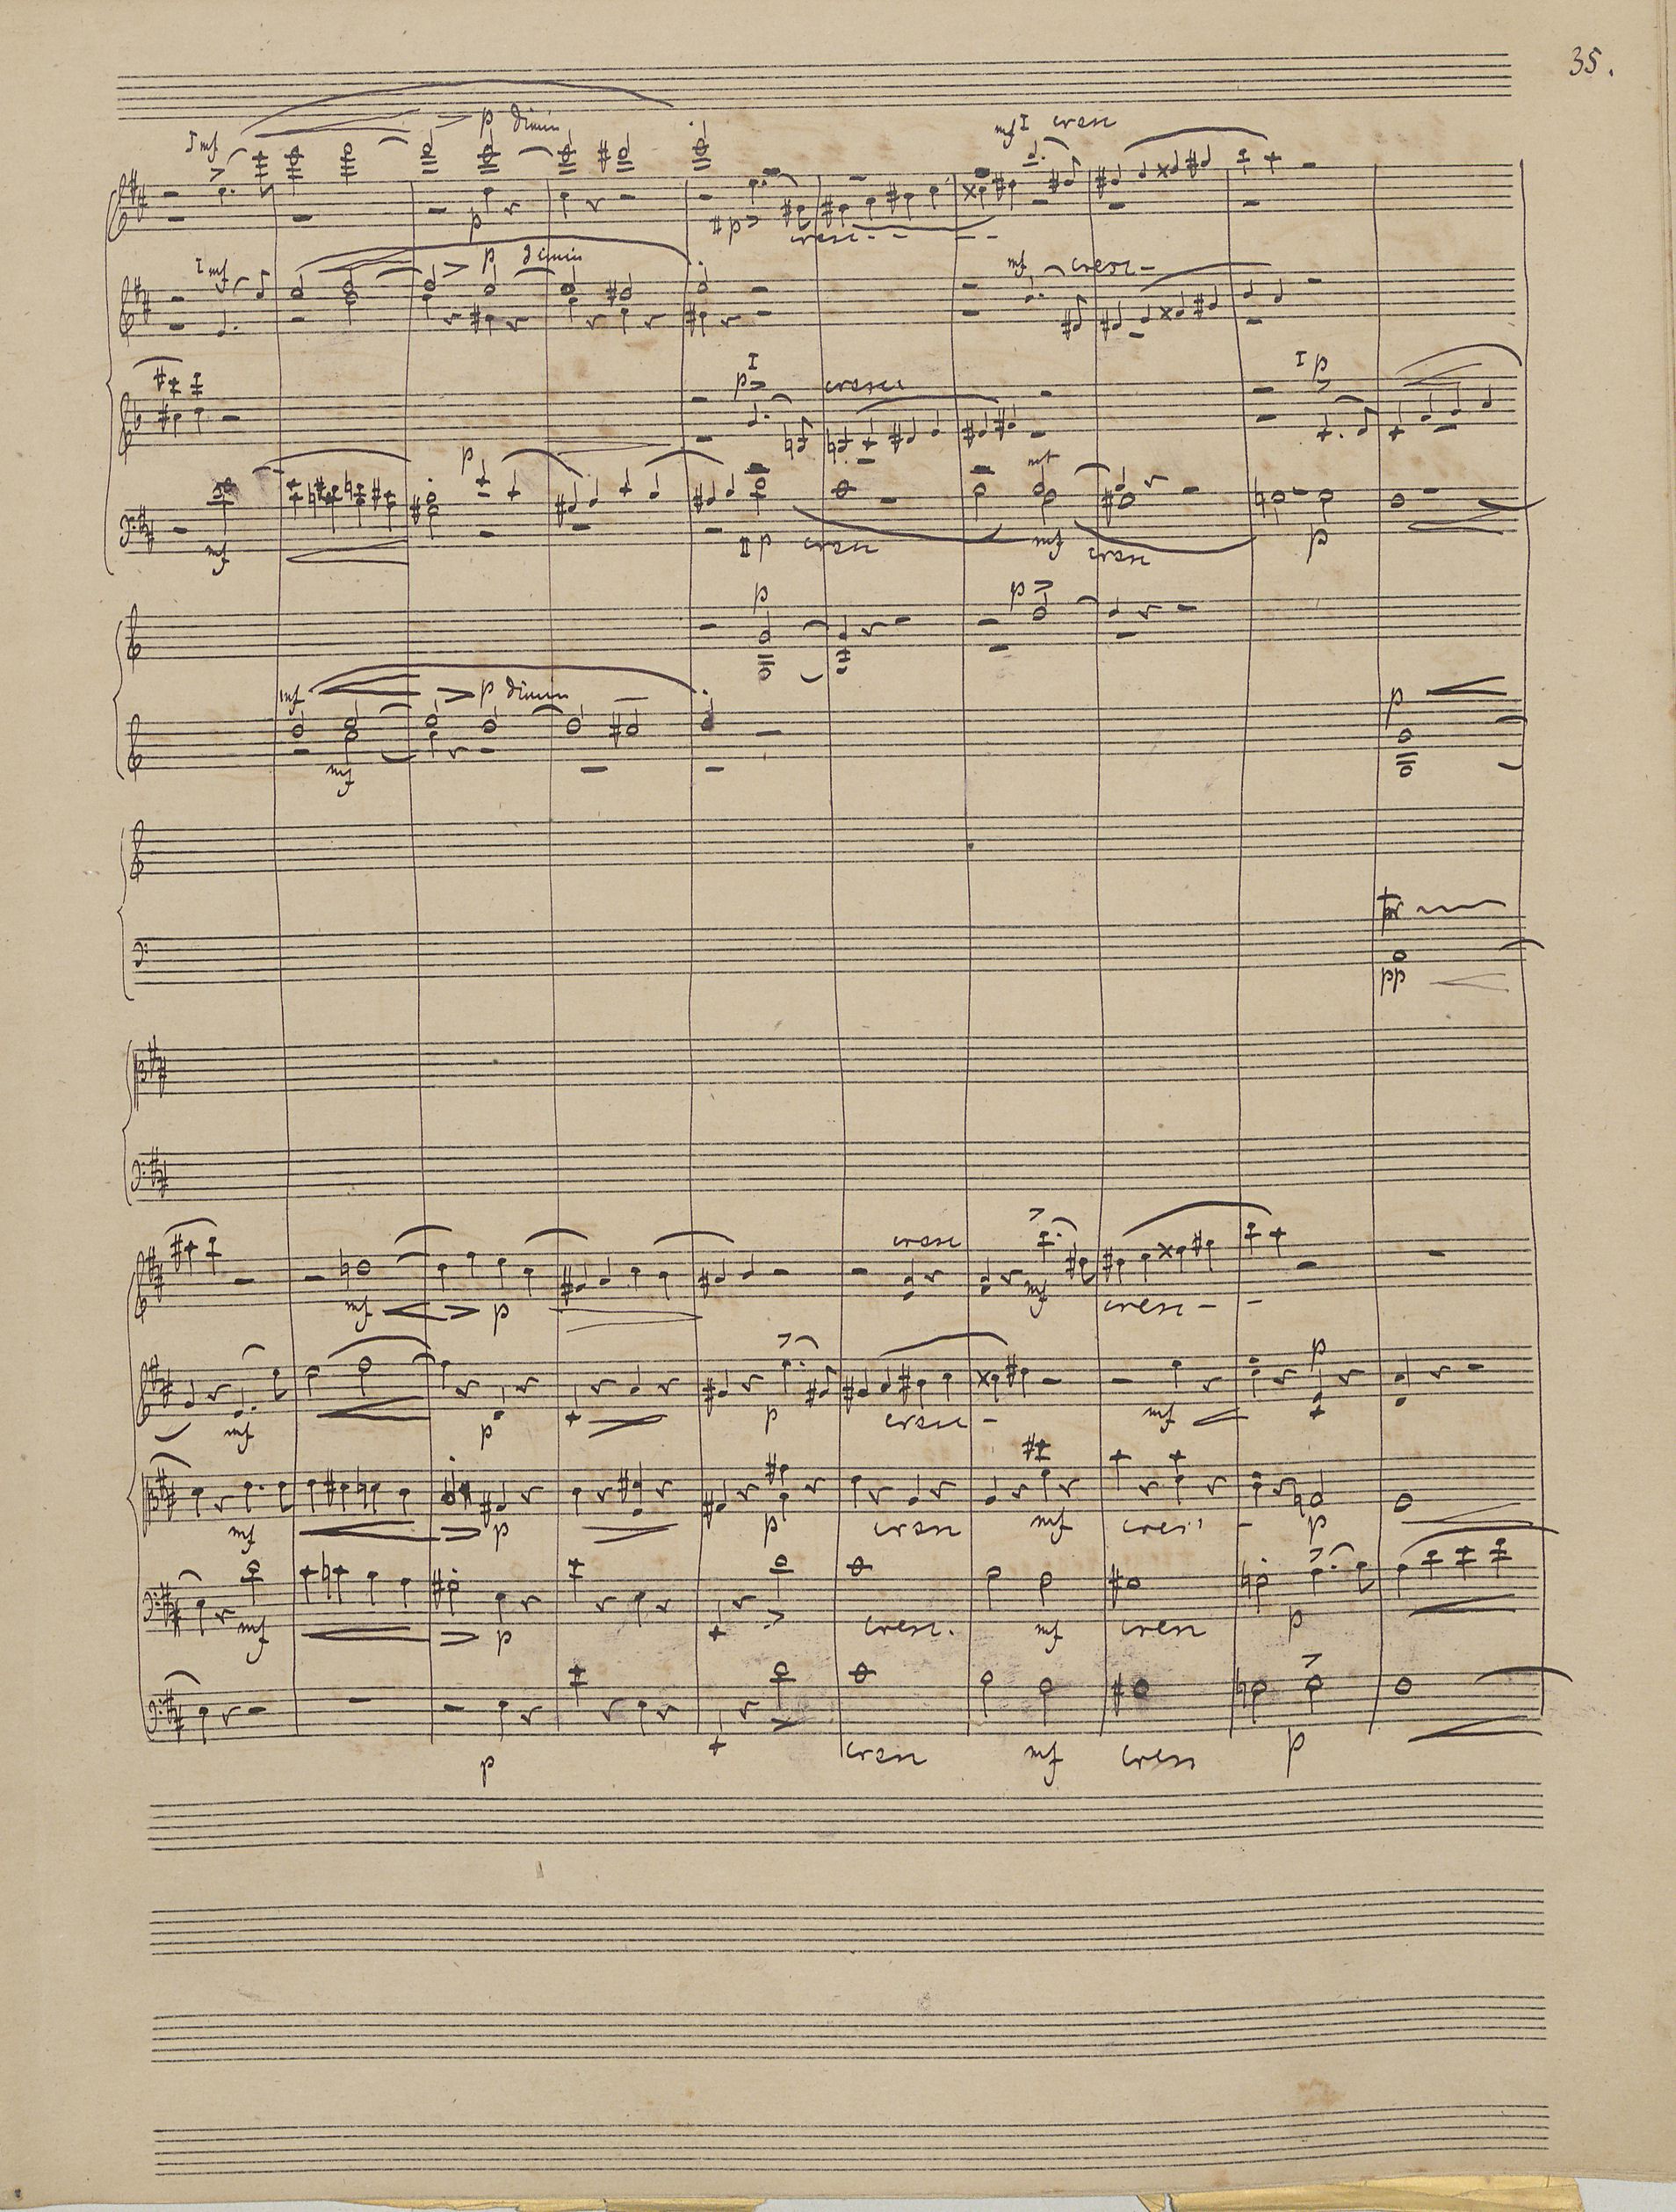 35.
I mf p dimin mf I cresc
p II p cresc - - - -
I mf p dimin mf cresc -
I p cresc I p
p mf
mf II p cresc mf cresc p
p p
mf p dimin p
mf
tr
pp
cresc
mf p mf cresc - -
p
mf p p cresc - mf
mf p p cresc mf cresc - p
mf p cresc. mf cresc p
p cresc mf cresc p